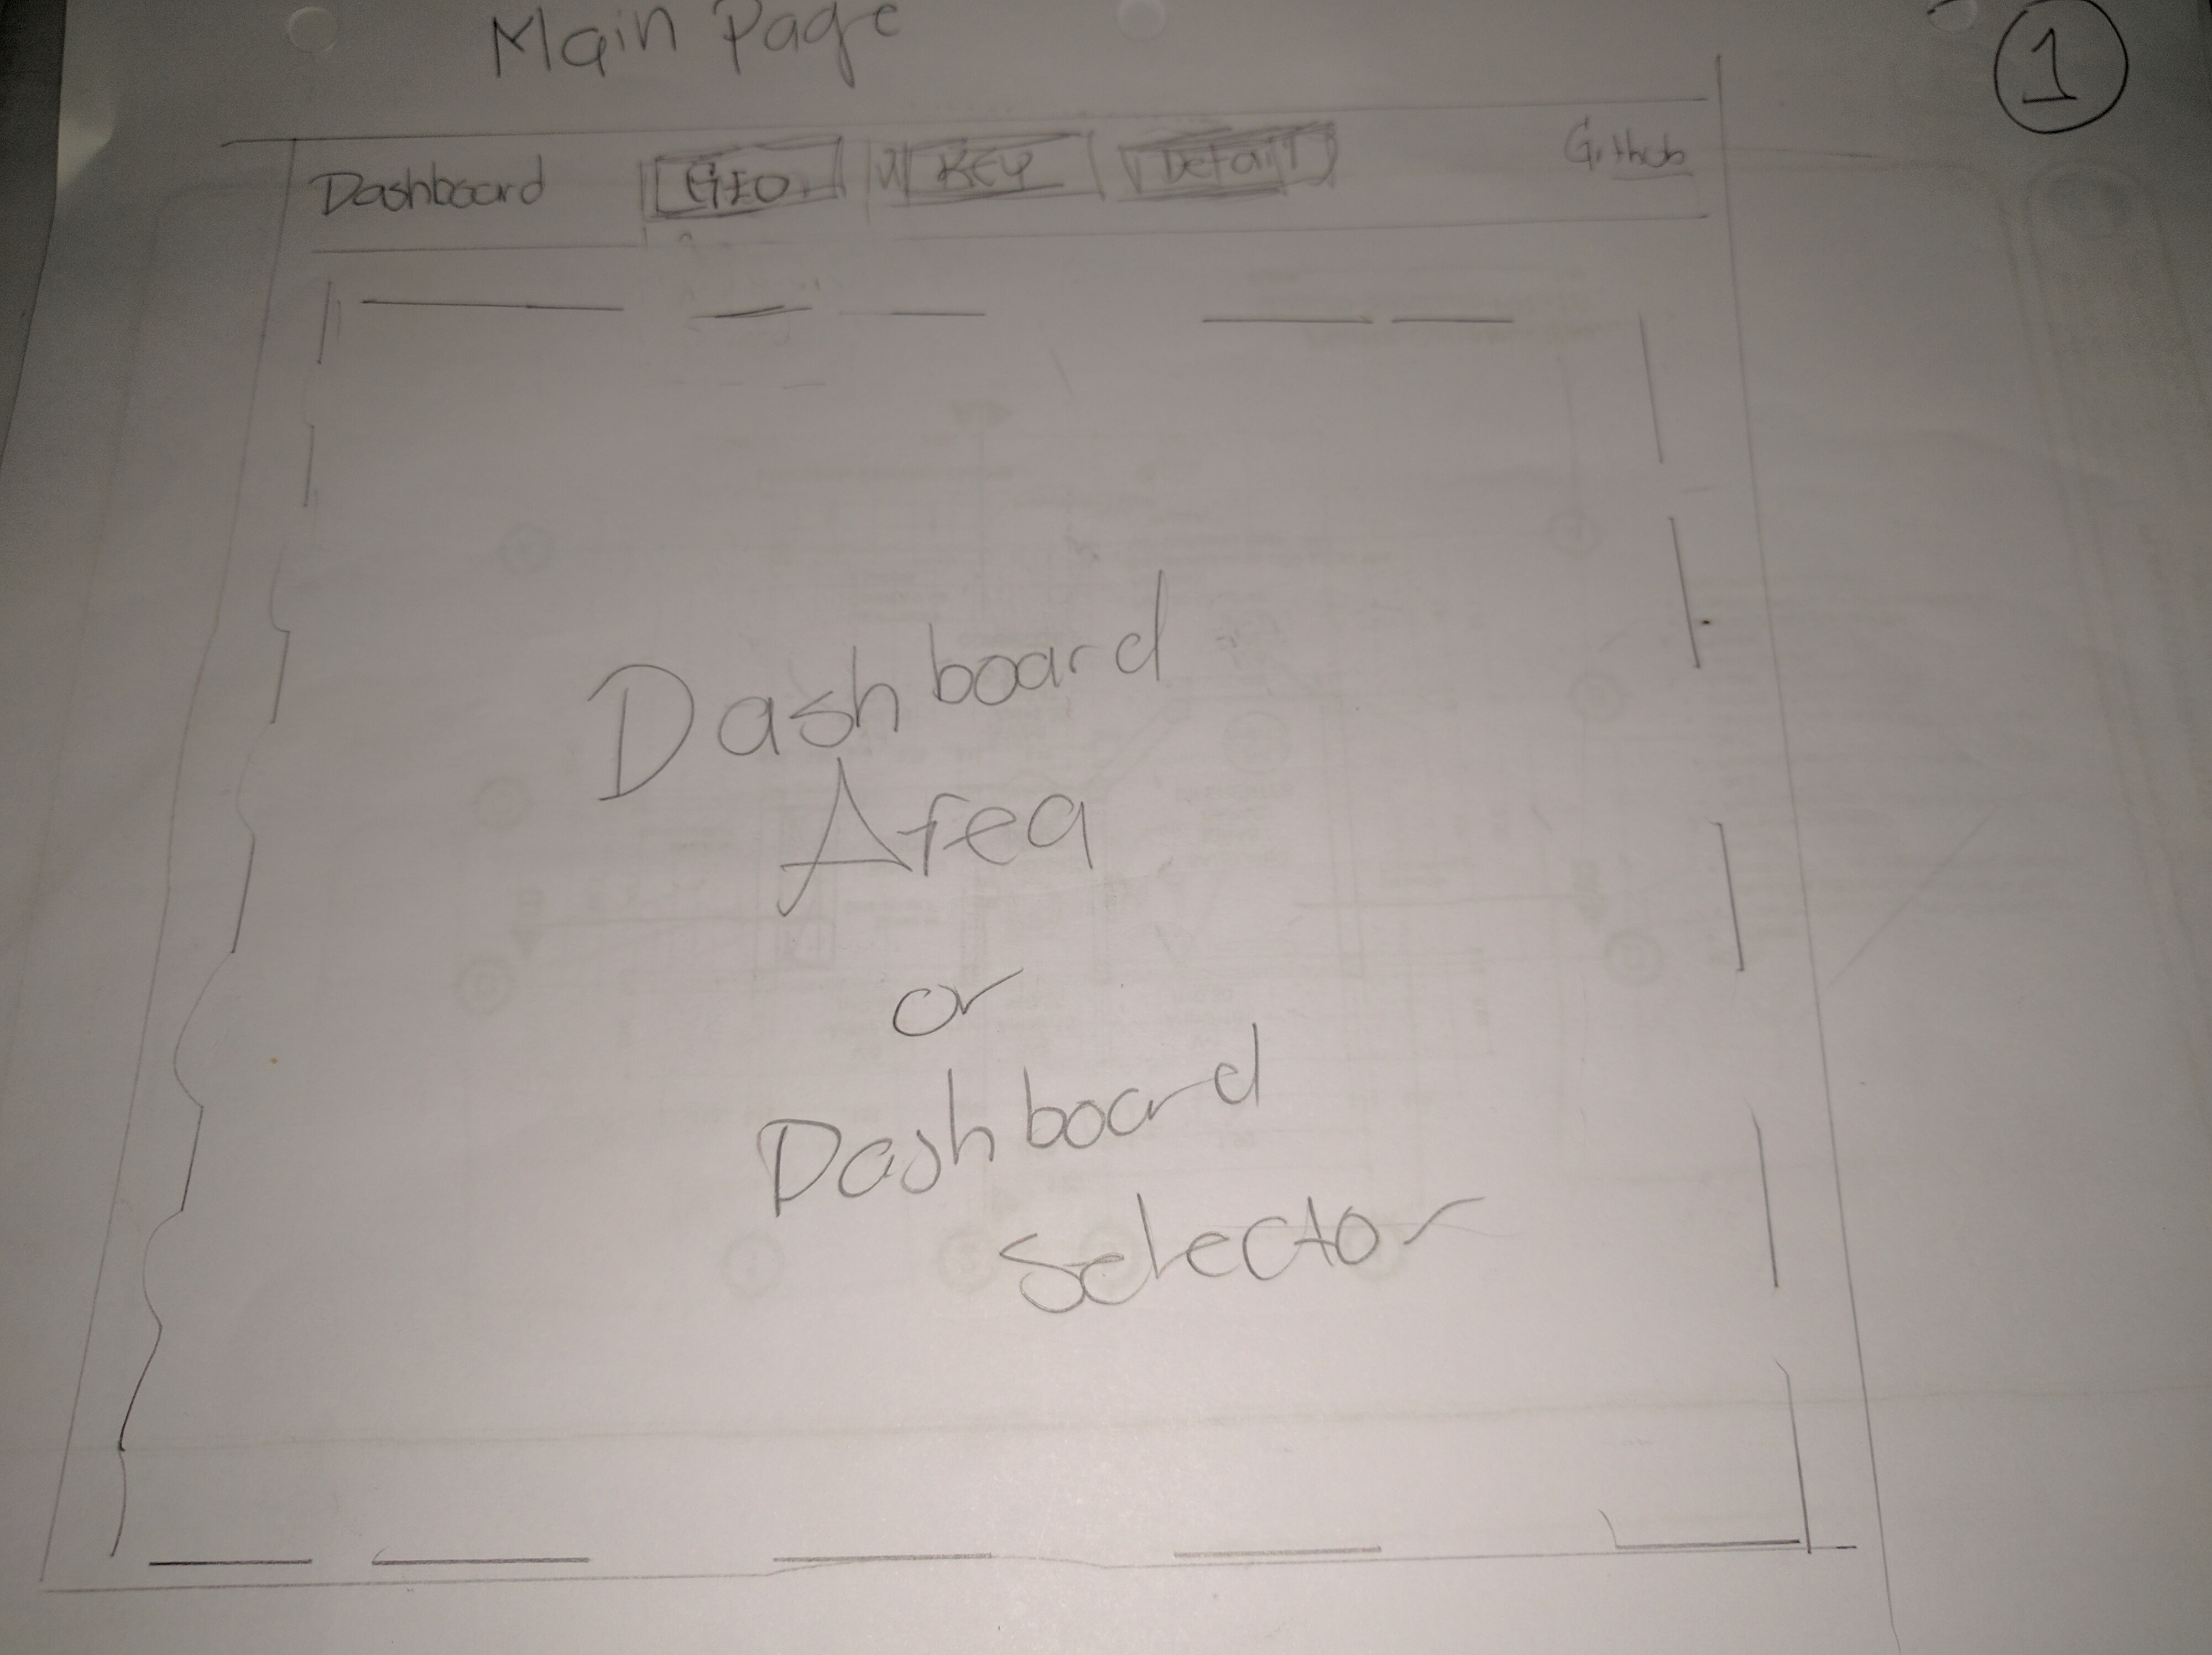 Main Page
1
Dashboard GEO KEY Detail Github
Dashboard
Area
or
Dashboard
Selector